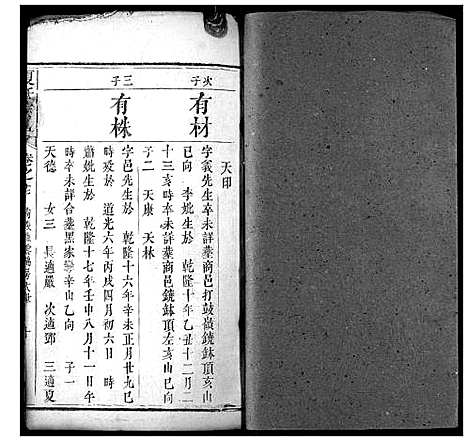 天印
次子
有材
字義先生卒未詳葬商邑打鼓嶺鐃鈸頂亥山
已向 李妣生於 乾隆十年乙丑十二月二
十三亥時卒未詳葬商邑鐃鈸頂左亥山巳向
子二 天康 天林
三子
有株
字邑先生於 乾隆十六年辛未正月廿九巳
時歿於 道光六年丙戌四月初六日 時
蕭妣生於 乾隆十七年壬申八月十一日午
時卒未詳合葬黑家 辛山乙向 子一
天德 女三 長適嚴 次適鄧 三適夏
夏氏
卷之